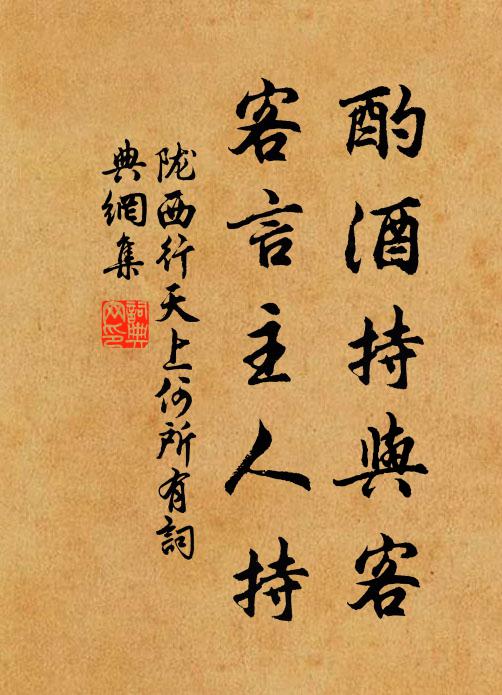 酌酒持與客
客言主人持
陇西行天上何所有詞
典網集
詞典
网印